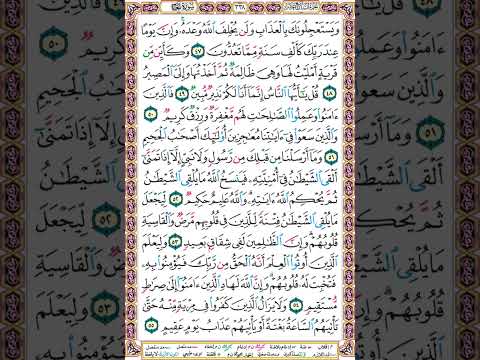 سورة الحج
٣٣٨
وَيَسْتَعْجِلُونَكَ بِالْعَذَابِ وَلَن يُخْلِفَ اللَّهُ وَعْدَهُ وَإِنَّ يَوْمًا
عِندَ رَبِّكَ كَأَلْفِ سَنَةٍ مِّمَّا تَعُدُّونَ ٤٧ وَكَأَيِّن مِّن
قَرْيَةٍ أَمْلَيْتُ لَهَا وَهِيَ ظَالِمَةٌ ثُمَّ أَخَذْتُهَا وَإِلَيَّ الْمَصِيرُ
٤٨ قُلْ يَا أَيُّهَا النَّاسُ إِنَّمَا أَنَا لَكُمْ نَذِيرٌ مُّبِينٌ ٤٩ فَالَّذِينَ
ءَامَنُوا وَعَمِلُوا الصَّالِحَاتِ لَهُم مَّغْفِرَةٌ وَرِزْقٌ كَرِيمٌ ٥٠
وَالَّذِينَ سَعَوْا فِي ءَايَاتِنَا مُعَاجِزِينَ أُولَٰئِكَ أَصْحَابُ الْجَحِيمِ
٥١ وَمَا أَرْسَلْنَا مِن قَبْلِكَ مِن رَّسُولٍ وَلَا نَبِيٍّ إِلَّا إِذَا تَمَنَّىٰ
أَلْقَى الشَّيْطَانُ فِي أُمْنِيَّتِهِ فَيَنسَخُ اللَّهُ مَا يُلْقِي الشَّيْطَانُ
ثُمَّ يُحْكِمُ اللَّهُ ءَايَاتِهِ وَاللَّهُ عَلِيمٌ حَكِيمٌ ٥٢ لِّيَجْعَلَ
مَا يُلْقِي الشَّيْطَانُ فِتْنَةً لِّلَّذِينَ فِي قُلُوبِهِم مَّرَضٌ وَالْقَاسِيَةِ
قُلُوبُهُمْ وَإِنَّ الظَّالِمِينَ لَفِي شِقَاقٍ بَعِيدٍ ٥٣ وَلِيَعْلَمَ
الَّذِينَ أُوتُوا الْعِلْمَ أَنَّهُ الْحَقُّ مِن رَّبِّكَ فَيُؤْمِنُوا بِهِ
فَتُخْبِتَ لَهُ قُلُوبُهُمْ وَإِنَّ اللَّهَ لَهَادِ الَّذِينَ ءَامَنُوا إِلَىٰ صِرَاطٍ
مُّسْتَقِيمٍ ٥٤ وَلَا يَزَالُ الَّذِينَ كَفَرُوا فِي مِرْيَةٍ مِّنْهُ حَتَّىٰ
تَأْتِيَهُمُ السَّاعَةُ بَغْتَةً أَوْ يَأْتِيَهُمْ عَذَابُ يَوْمٍ عَقِيمٍ ٥٥